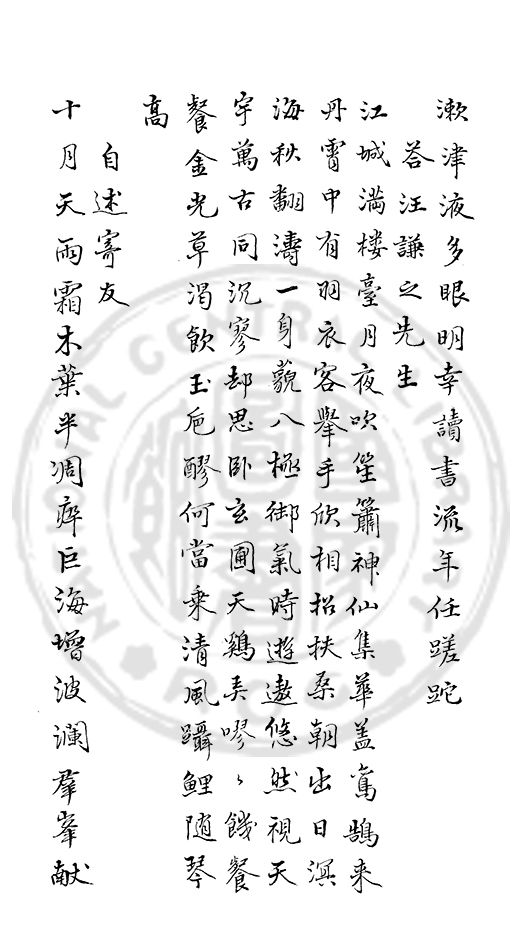 漱津液多眼明幸讀書流年任蹉跎
答汪謙之先生
江城滿楼臺月夜吹笙簫神仙集華盖鸾鵠来
丹霄中有羽衣客舉手欣相招扶桑朝出日溟
海秋翻濤一身藐八極御氣時遊遨悠然視天
宇萬古同沉寥却思卧玄圃天鷄美嘐〻饑餐
餐金光草渴飲玉卮醪何當乘清風躡鲤随琴
高
自述寄友
十月天雨霜木葉半凋瘁巨海增波澜羣峯献
NATIONAL CENTRAL LIBRARY